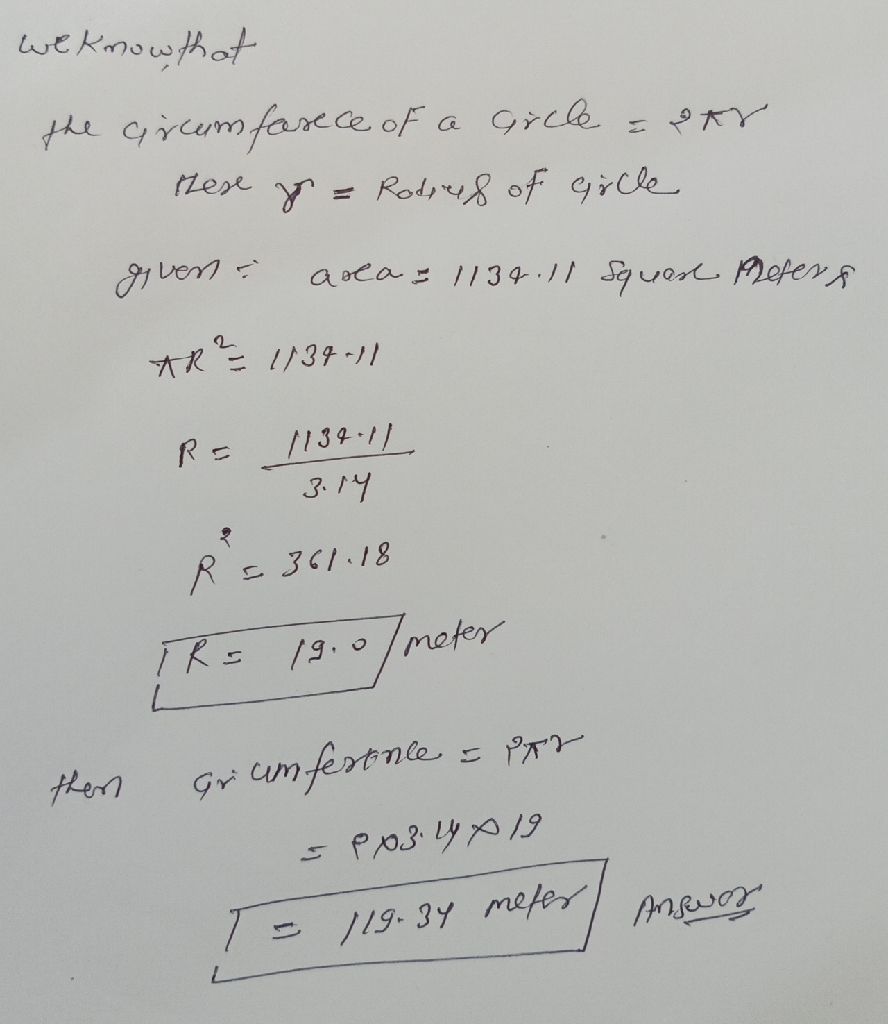 we know that
the circumfarece of a circle = 2πr
Here r = Radius of circle
given : area = 1134.11 Square Meters
πR² = 1134.11
R = 1134.11 / 3.14
R² = 361.18
R = 19.0 meter
then circumference = 2πr
= 2×3.14×19
= 119.34 meter Answer